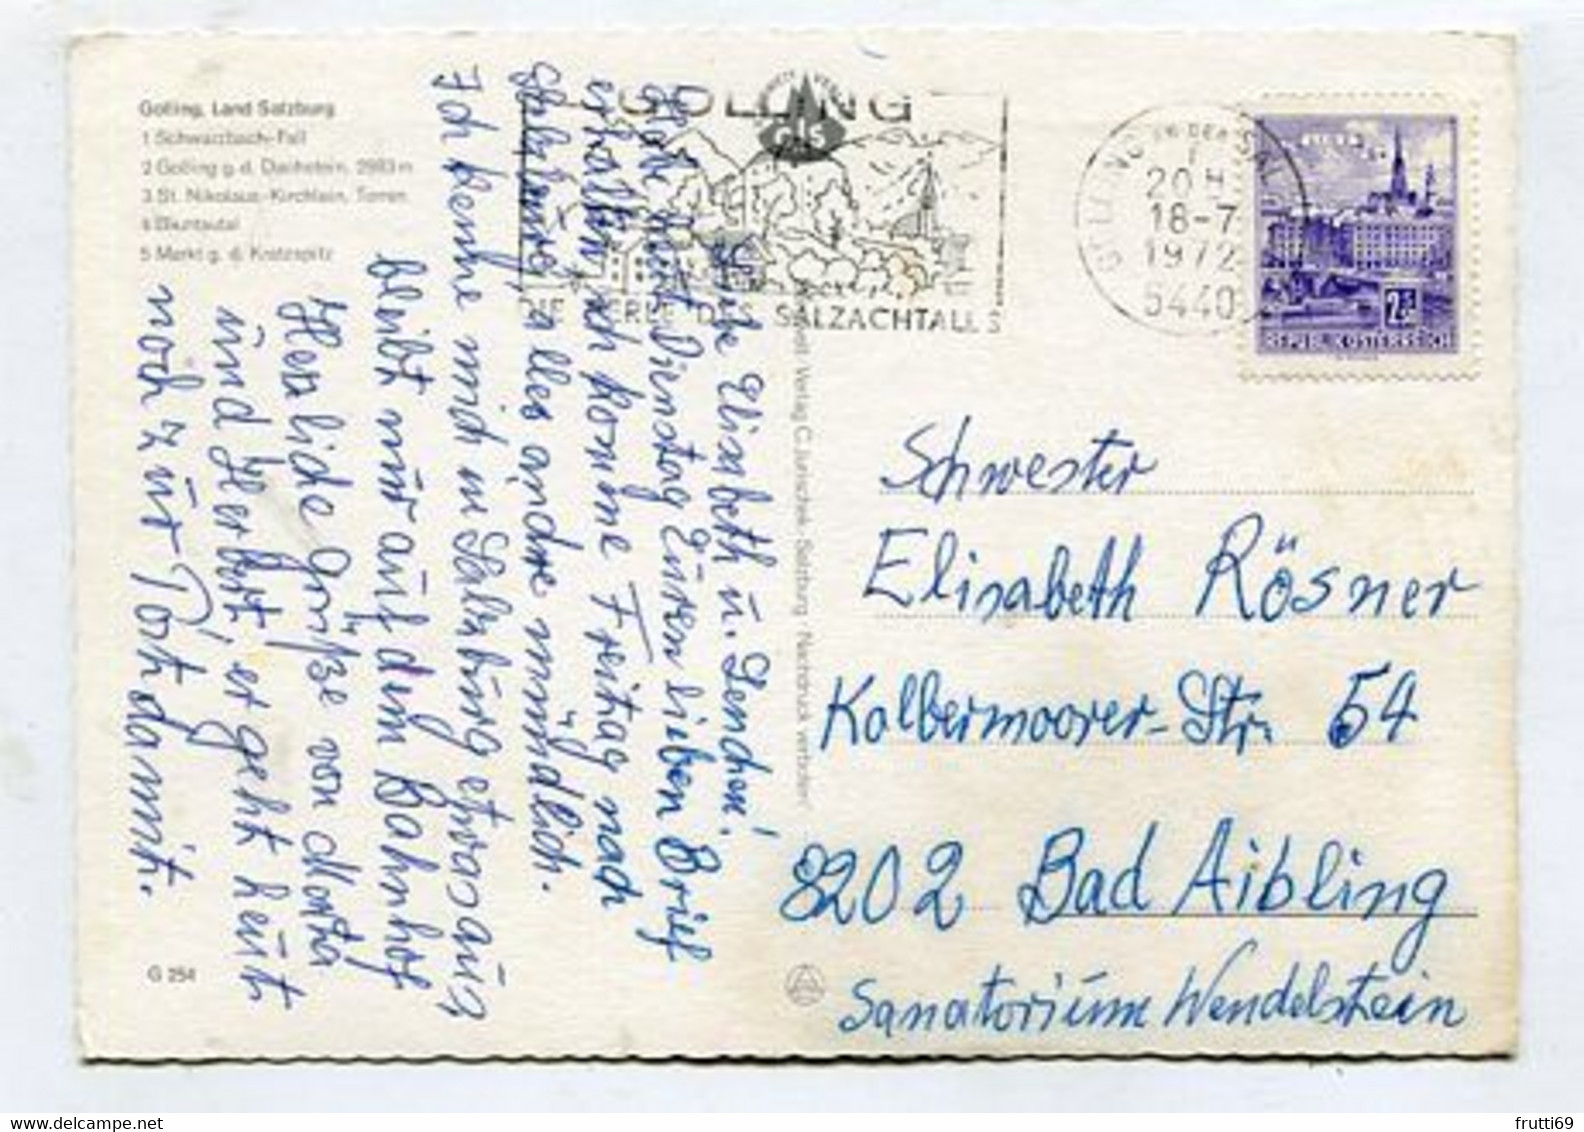 Golling, Land Salzburg
1 Schwarzbach-Fall
2 Golling g. d. Dachstein, 2993 m
3 St. Nikolaus-Kirchlein, Torren
4 Bluntautal
5 Markt g. d. Kratzspitz
GOLLING
DIE PERLE DES SALZACHTALES
GOLLING AN DER SAL
20 H
18-7
1972
5440
REPUBLIK ÖSTERREICH
Liebe Elisabeth u. Lenchen!
Habe heut Dienstag Euren lieben Brief
erhalten ich komme Freitag nach
alles andre mündlich.
Ich kenne mich in Salzburg etwas aus
bleibt nur auf dem Bahnhof
Herzliche Grüße von
und Herbert, er geht heut
noch zur Post damit.
Verlag C. Jurischek, Salzburg · Nachdruck verboten
Schwester
Elisabeth Rösner
Kolbermoorer-Str. 54
8202 Bad Aibling
Sanatorium Wendelstein
G 254
frutti69